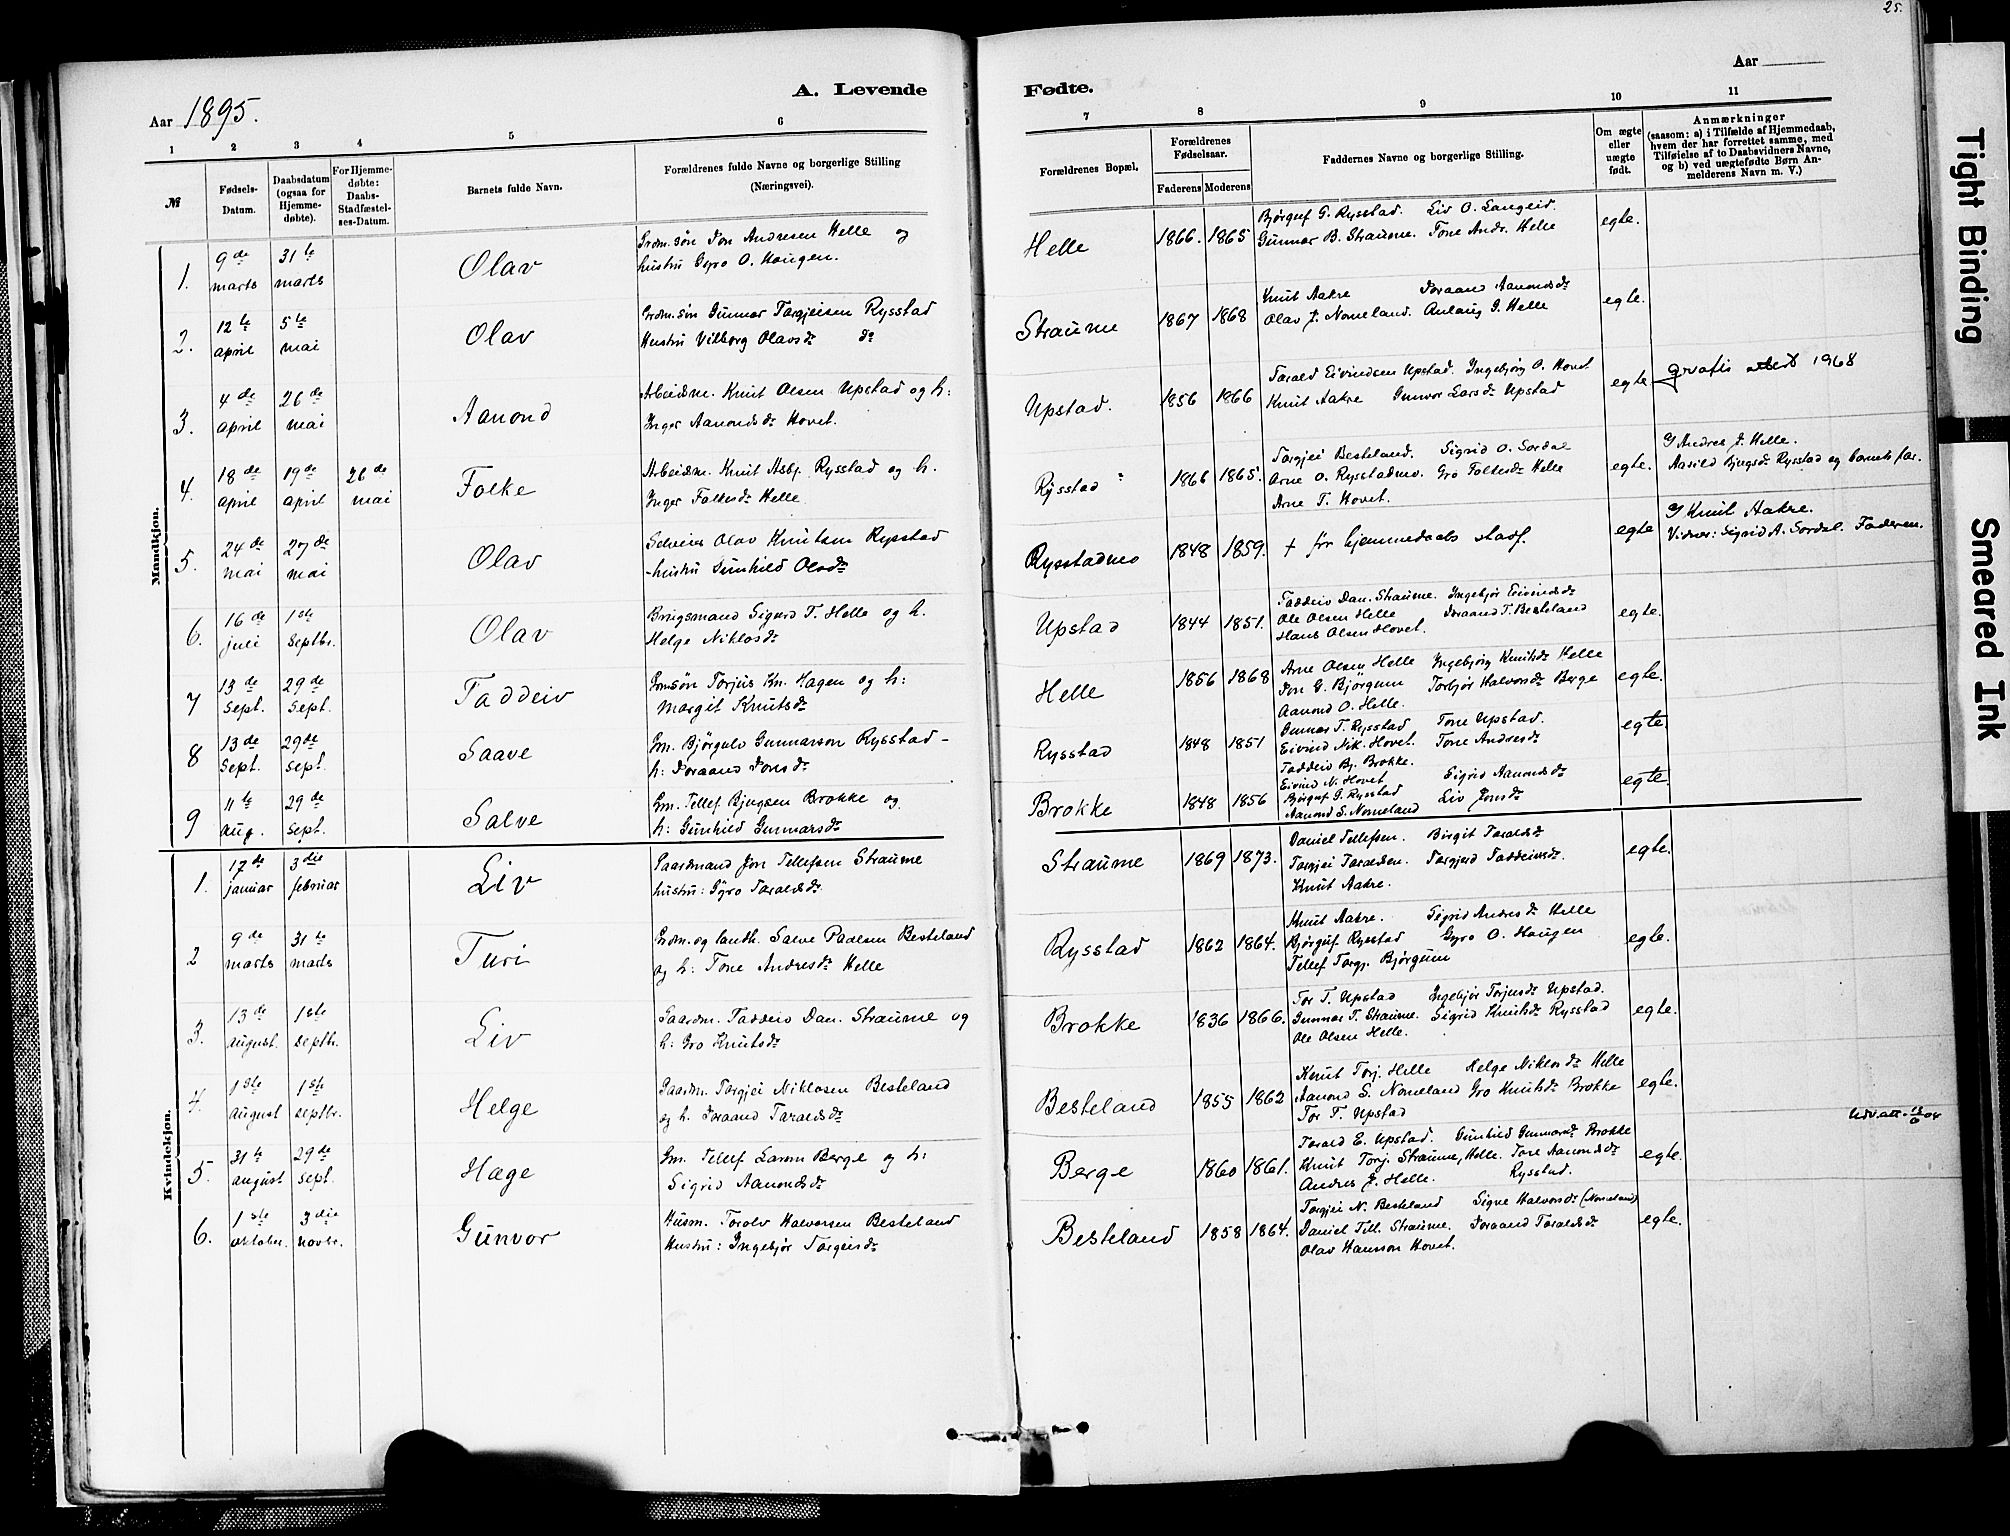 25.
A. Levende Fødte.
Aar 1895.
Aar
1 2 3 4 5 6 7 8 9 10 11
№
Fødsels-Datum.
Daabsdatum (ogsaa for Hjemme-døbte).
For Hjemme-døbte: Daabs-Stadfæstel-ses-Datum.
Barnets fulde Navn.
Forældrenes fulde Navne og borgerlige Stilling (Næringsvei).
Forældrenes Bopæl.
Forældrenes Fødselsaar.
Faderens Moderens
Faddernes Navne og borgerlige Stilling.
Om ægte eller uægte født.
Anmærkninger
(saasom: a) i Tilfælde af Hjemmedaab, hvem der har forrettet samme, med Tilføielse af to Daabsvidners Navne, og b) ved uægtefødte Børn Anmelderens Navn m. V.)
Mandkjøn.
1. 9de marts 31te marts Olav
Grdm.søn Jon Andresen Helle og
hustru Gyro O. Haugen.
Helle 1866. 1865
Bjørguf G. Rysstad. Liv O. Langeid.
Gunnar B. Straume. Tone Andr. Helle
egte.
2. 12te april 5te mai Olav
Grdm.søn Gunnar Torgjeisen Rysstad
Hustru Vilborg Olavsdr do
Straume 1867 1868
Knut Aakre Joraand Aanondsdr
Olav J. Nomeland. Anlaug G. Helle
egte.
3. 4de april 26de mai Aanond
Arbeidsm. Knut Olsen Upstad og h:
Inger Aanondsdr Hovet.
Upstad. 1856 1866
Tarald Eivindsen Upstad. Ingebjørg O. Hovet
Knut Aakre Gunvor Larsdr Upstad
egte
gratis attest 1968
4. 18de april 19de april 26de mai Folke
Arbeidsm. Knut Asbj. Rysstad og h.
Inger Folkesdr Helle
Rysstad 1866 1865.
Torgjei Besteland. Sigrid O. Sordal
Arne O. Rysstadmo. Gro Folkesdr Helle
Arne T. Hovet.
egte.
Andres J. Helle.
Aasild Bjugsdr Rysstad og barnets far.
5. 24de mai 27de mai Olav
Selveier Olav Knutsen Rysstad
hustru Gunhild Olsdr
Rysstadmo 1848 1859.
† før hjemmedaabs stadf.
egte
Knut Aakre.
Vidner: Sigrid A. Sordal. Faderen.
6. 16de juli 1ste Septbr. Olav
Brugsmand Sigurd T. Helle og h.
Helge Niklosdr
Upstad 1844 1851.
Taddeiv Dan. Straume. Ingebjør Eivindsdr
Ole Olsen Helle Joraand T. Besteland
Hans Olsen Hovet.
egte.
7 13de Sept. 29de Sept. Taddeiv
Grmsøn Torjus Kn. Hagen og h:
Margit Knutsdr
Helle 1856 1868
Arne Olsen Helle Ingebjørg Knutsdr Helle
Jon G. Bjørgum Torbjør Halvorsdr Berge
Aanond O. Helle.
egte.
8 13de Sept. 29de Sept. Saave
Grm. Bjørgulv Gunnarson Rysstad -
h: Joraand Jonsdr
Rysstad 1848 1851
Gunnar T. Rysstad Tone Upstad.
Eivind Nik. Hovet. Tone Andresdr
Taddeiv Bj. Brokke.
egte
9 11te aug. 29de sept. Salve
Grm. Tellef Bjugsen Brokke og
h: Gunhild Gunnarsdr
Brokke 1848 1856
Eivind N. Hovet Sigrid Aanondsdr
Bjørguf G. Rysstad Liv Jonsdr
Aanond S. Nomeland
egte.
Kvindekjøn.
1. 17de januar 3die februar Liv
Gaardmand Jon Tellefsen Straume
hustru: Gyro Taraldsdr.
Straume 1869 1873.
Daniel Tellefsen. Birgit Taraldsdr
Torgjei Taraldsen. Torgjerd Taddeivsdr.
Knut Aakre.
egte.
2 9de marts 31te marts Turi
Grdm. og landh. Salve Paalsen Besteland
og h: Tone Andresdr Helle
Rysstad 1862 1864.
Knut Aakre. Sigrid Andresdr Helle
Bjørguf Rysstad Gyro O. Haugen
Tellef Torgj. Bjørgum
egte.
3. 13de august. 1ste septbr. Liv
Gaardm. Taddeiv Dan. Straume og
h: Gro Knutsdr
Brokke 1836 1866.
Tor T. Upstad Ingebjør Torjusdr Upstad.
Gunnar T. Straume. Sigrid Knutsdr Rysstad
Ole Olsen Helle.
egte.
4. 1ste august 1ste septbr. Helge
Gaardm. Torgjei Niklosen Besteland
og h. Joraand Taraldsdr
Besteland 1855 1862
Knut Torj. Helle Helge Niklosdr Helle
Aanond S. Nomeland Gro Knutsdr Brokke
Tor T. Upstad
egte.
5. 31te august 29de sept. Hæge
Grm. Tellef Larsen Berge og h:
Sigrid Aanondsdr
Berge 1860 1861.
Tarald E. Upstad. Gunhild Gunnarsdr Brokke
Knut Torj. Straume, Helle. Tone Aanondsdr
Andres J. Helle. Rysstad.
egte.
6. 1ste oktober. 3die novbr. Gunvor
Husm. Torolv Halvorsen Besteland
Hustru: Ingebjør Torgeirsdr
Besteland 1858 1864.
Torgjei N. Besteland Signe Halvorsdr (Nomeland)
Daniel Till. Straume. Joraand Taraldsdr
Olav Hanson Hovet.
egte.
Tight Binding
Smeared Ink